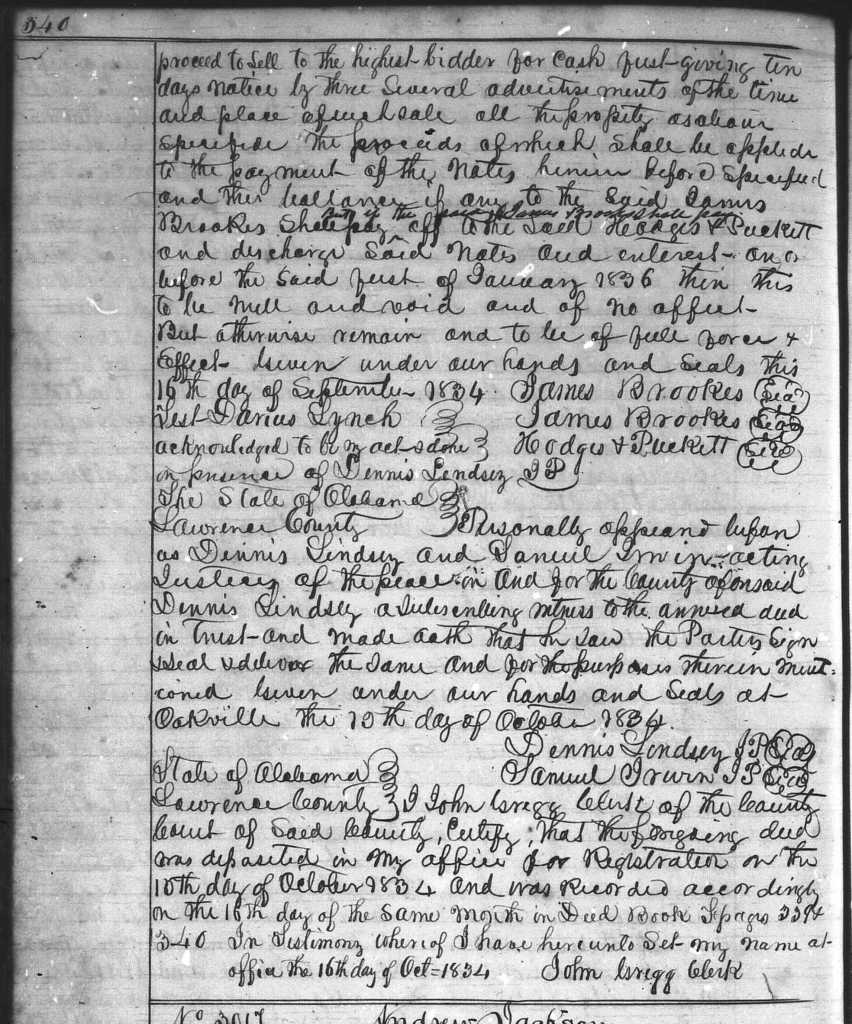 340
proceed to Sell to the highest bidder for Cash first giving ten
days notice by three Several advertisements of the time
and place of such sale all the property as above
Specified the proceeds of which Shall be applied
to the payment of the Notes herein before Specified
and the ballance if any to the Said James
But if the said James Brookes Shall pay
Brookes Shall pay off to the Said Hodges & Puckett
and discharge Said Notes and interest on or
before the Said first of January 1836 then this
to be null and void and of no affect
But otherwise remain and to be of full force &
Effect Given under our hands and Seals this
16th day of September 1834. James Brookes Seal
Test Darius Lynch James Brookes Seal
acknowledged to be my act & done Hodges & Puckett Seal
in presence of Dennis Lindsey J P
The State of Alabama
Lawrence County Personally appeard before
us Dennis Lindsey and Samuel Irwin acting
Justices of the peace in and for the County aforesaid
Dennis Lindsey a Subscribing witness to the annexed deed
in Trust and made oath that he saw the Parties Sign
Seal & deliver the Same and for the purposes therein ment-
ioned Given under our hands and Seals at
Oakville the 10th day of October 1834.
Dennis Lindsey J P Seal
State of Alabama Samuel Irwin J P Seal
Lawrence County I John Gregg Clerk of the County
Court of Said County, Certify, that the foregoing deed
was deposited in my office for Registration on the
10th day of October 1834 and was Recorded accordingly
on the 16th day of the Same Month in Deed Book F pages 339 &
340 In Testimony whereof I have hereunto Set my name at
office the 16th day of Oct=1834 John Gregg Clerk
No 3017 Andrew Jackson